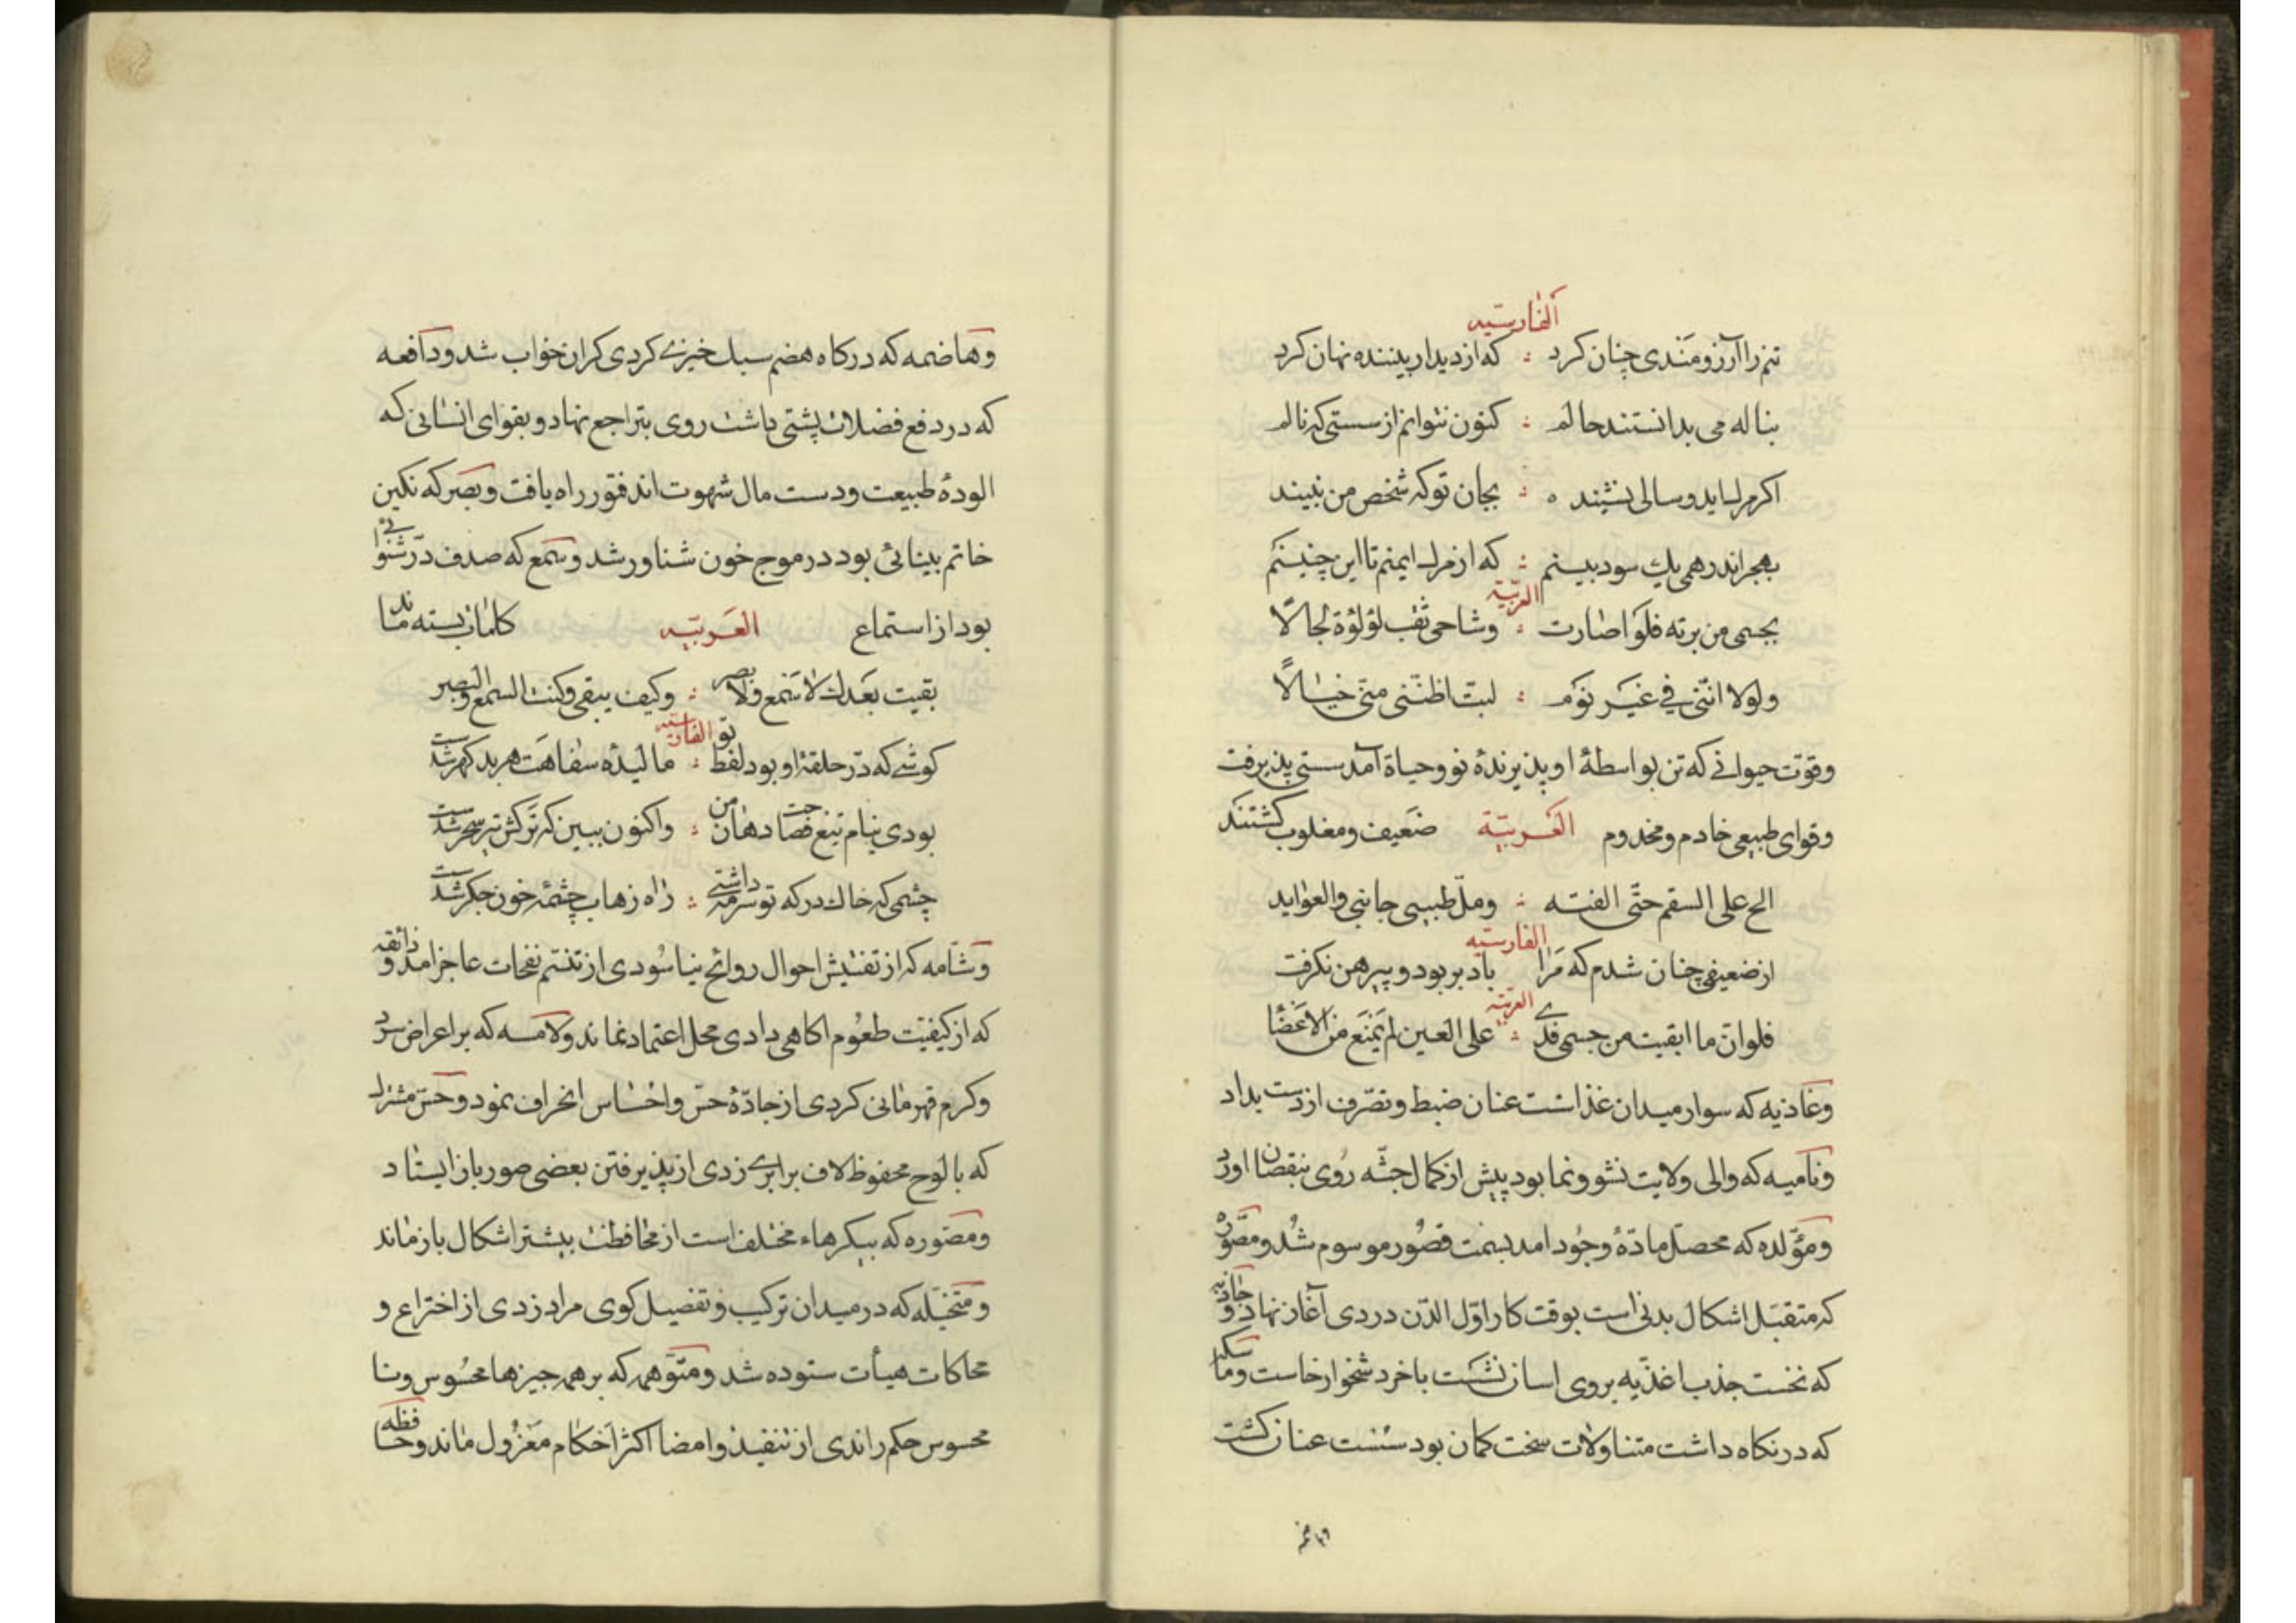 الفارسیه
تنم را آرزومندی چنان کرد ؞ که از دیدار بیننده نهان کرد
بناله می بدانستند حالم ؞ کنون نتوانم از سستی که نالم
اکر مرک اید و سالی نشیند ه ؞ بجان تو که شخص من نبیند
بهجر اندر همی یک سود بینم ؞ که از مرک ایمنم تا این چنینم
العربیّة
بجسمی من برته فلو اصارت ؞ وشاحی ثقب لؤلؤة لجالا
ولولا انّنی فی غیر نوم ؞ لبتّ اظنّنی منّی خیالاً
وقوّت حیوانی که تن بواسطهٔ او پذیرندهٔ نو و حیاة آمد سستی پذیرفت
وقوای طبیعی خادم و مخدوم العربیّة ضعیف و مغلوب کشتند
الح علی السقم حتّی الفته ؞ وملّ طبیبی جانبی والعواید
الفارسیّه
از ضعیفی چنان شدم که مرا باد بربود و پیرهن نکرفت
العربیّة
فلوان ما ابقیت من جسمی قذی ؞ علی العین لم یمنع من الاغضا
وغاذیه که سوار میدان غذا است عنان ضبط و تصّرف از دست بداد
ونامیه که والی ولایت نشو و نما بود پیش از کمال جثّه روی بنقصان اورد
ومؤلده که محصل مادّهٔ وجود امد بسمت قصور موسوم شد و مصّوره
که متقبل اشکال بدنی است بوقت کار اوّل الدّن دردی آغاز نهاد و جاذبه
که نخست جذب اغذیه بروی اسان نشست باخرد شخوار خاست و ماسکه
که در نکاه داشت متناولات سخت کمان بود سست عنان کشت
وهاضمه که درکاه هضم سبک خیزی کردی کران خواب شد و دافعه
که در دفع فضلات پشتی داشت روی بتراجع نهاد و بقوای انسانی که
الودهٔ طبیعت و دست مال شهوت اند فتور راه یافت و بصر که نکین
خاتم بینائی بود در موج خون شناور شد و سمع که صدف درّ شنوائی
بود از استماع العربیّه کلمات بسته ماند
بقیت بعدک لا سمع ولا بصر ؞ وکیف یبقی وکنت السمع والبصر
الفارسیّه
کوشی که درّ حلقهٔ او بود لفظ تو ؞ مالیدهٔ سفاهت هر بد کهر شدست
بودی نیام تیغ فصاحت دهان من ؞ واکنون ببین که ترکش تیر سحر شدست
چشمی که خاک درکه تو سرمه داشتی ؞ راه زهاب چشمهٔ خون جکر شدست
وشامّه که از تفتیش احوال روائح نیاسودی از تنسّم نفحات عاجز امد و ذائقه
که از کیفیّت طعوم اکاهی دادی محل اعتماد نماند ولامسه که بر اعراض سرد
وکرم قهرمانی کردی از جادّهٔ حسّ و احساس انحراف نمود و حسّ مشترک
که با لوح محفوظ لاف برابری زدی از پذیرفتن بعضی صور باز ایستاد
ومصّوره که پیکرهاء مختلف است از محافظت بیشتر اشکال باز ماند
ومتخیّله که در میدان ترکیب و تفصیل کوی مراد زدی از اختراع و
محاکات هیأت ستوده شد و متوّهمه که بر همه چیزها محسوس و نا
محسوس حکم راندی از تنفیذ و امضا اکثر احکام معزول ماند و حافظه